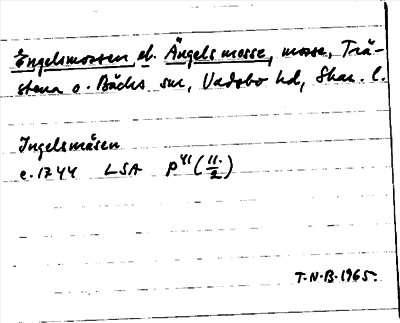 Engelsmossen el. Ängelsmosse, mosse, Trä-
stena o. Bäcks sn, Vadsbo hd, Skar. l.
Ingelsmåsen
c. 1744 LSA P 41 (11/2)
T.N.B. 1965.